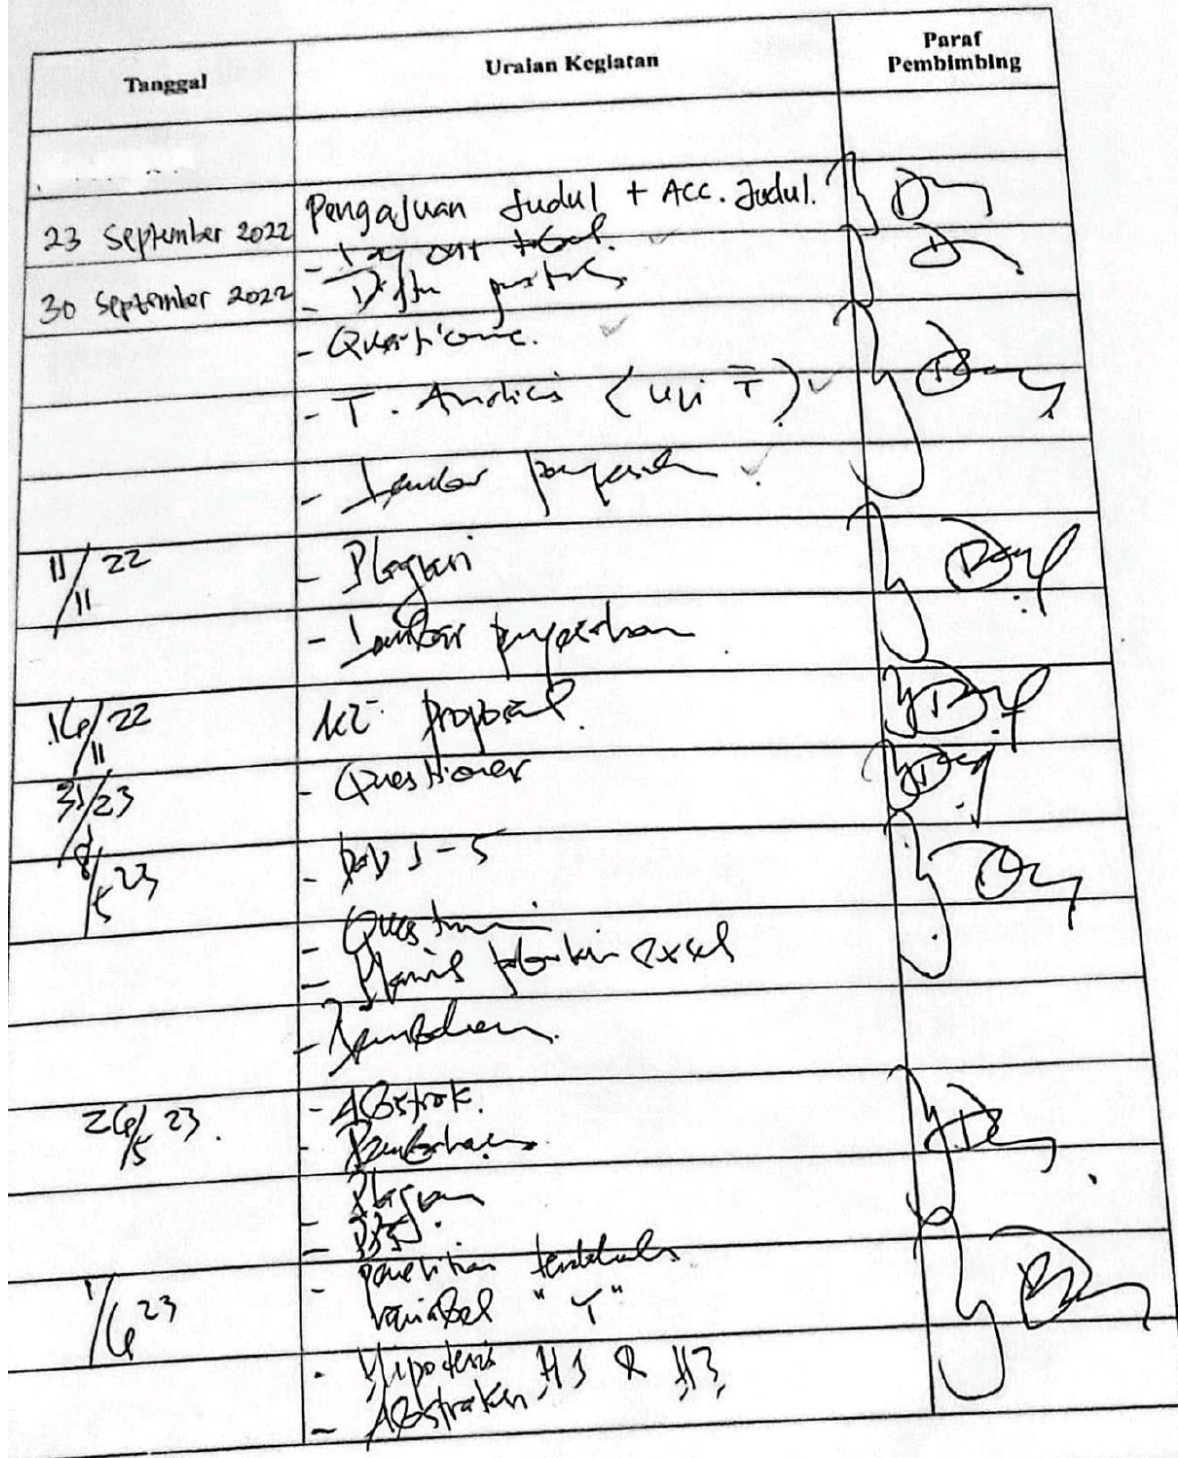 Tanggal
Uraian Kegiatan
Paraf
Pembimbing
23 September 2022
Pengajuan Judul + Acc. Judul.
- Lay out tabel.
30 September 2022
- Daftar pustaka
- Questioner.
- T. Analisis (Uji T)
- Lembar pengesahan
11/11 22
- Plagiasi
- Lembar pengesahan
16/11 22
Acc proposal.
31/23
- Questioner
8/5 23
- bab 1-5
- Questioner
- excel
- Pembahasan.
26/5 23.
- Abstrak.
- Pembahasan
- Plagiasi
- PPT.
1/6 23
- penelitian terdahulu
variabel "Y"
- Hipotesis H1 & H3
- Abstraksi